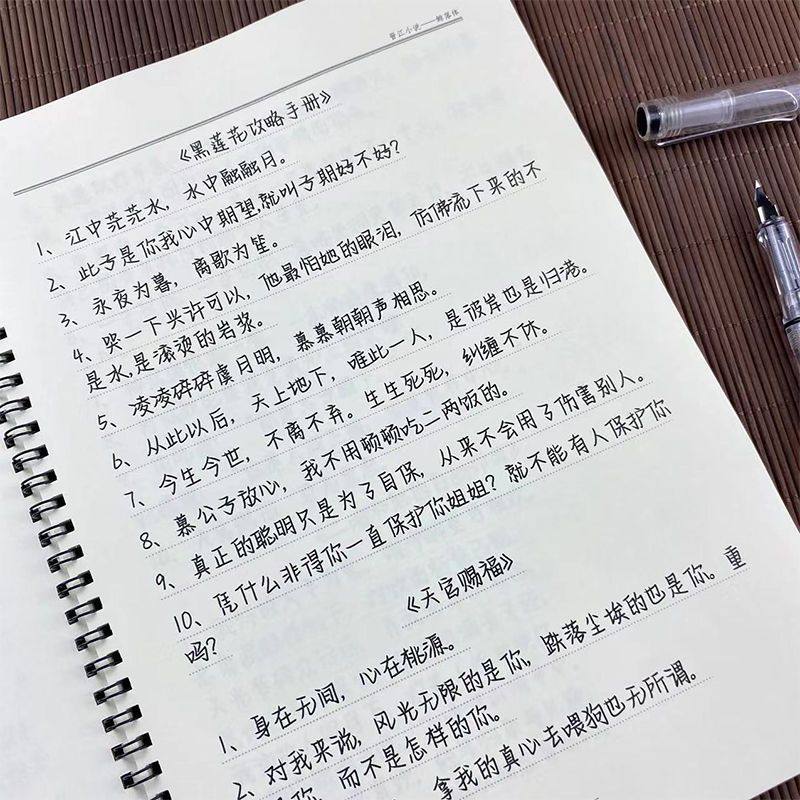 晋江小说——鲸落体
《黑莲花攻略手册》
1、江中茫茫水，水中融融月。
2、此子是你我心中期望,就叫子期好不好?
3、永夜为暮，离歌为笙。
4、哭一下兴许可以，他最怕她的眼泪，仿佛流下来的不
是水,是滚烫的岩浆。
5、凌凌碎碎虞月明，慕慕朝朝声相思。
6、从此以后，天上地下，唯此一人，是彼岸也是归港。
7、今生今世，不离不弃。生生死死，纠缠不休。
8、慕公子放心，我不用顿顿吃二两饭的。
9、真正的聪明只是为了自保，从来不会用了伤害别人。
10、凭什么非得你一直保护你姐姐？就不能有人保护你
吗?
《天官赐福》
1、身在无间，心在桃源。
2、对我来说，风光无限的是你，跌落尘埃的也是你。重
是你，而不是怎样的你。
拿我的真心去喂狗也无所谓。